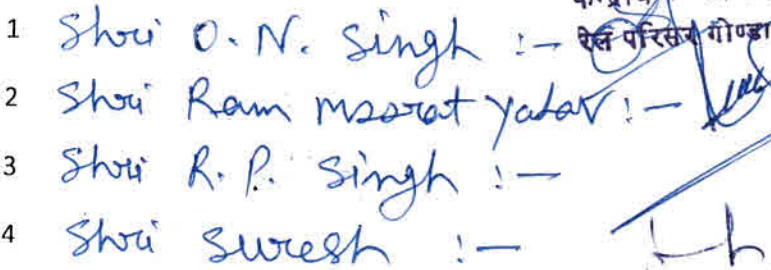 1 Shri O. N. Singh :- रेल परिसर गोण्डा
2 Shri Ram Moorat Yadav :-
3 Shri R. P. Singh :-
4 Shri Suresh :-